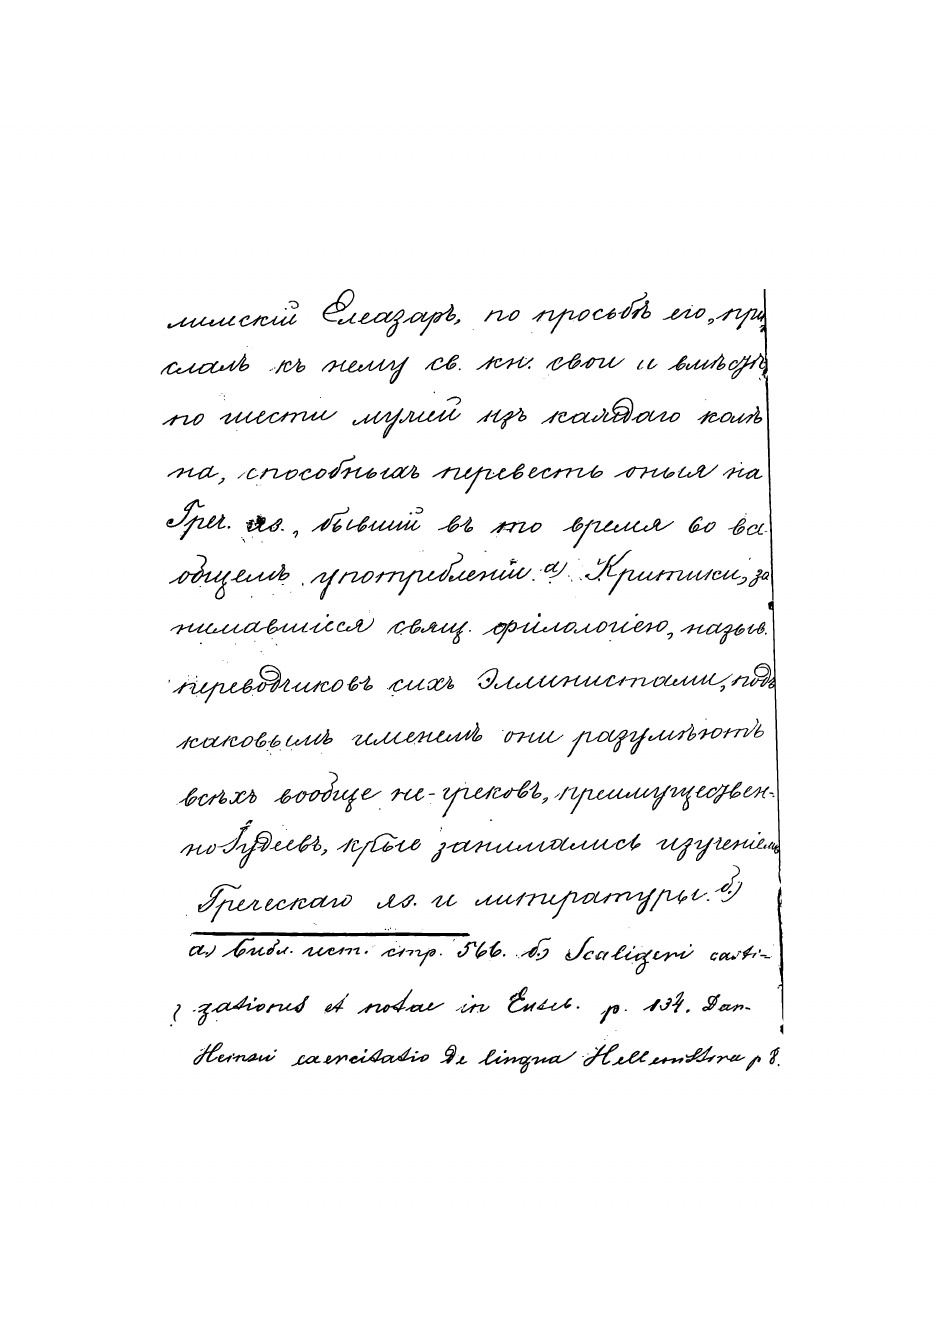 лимскій Елеазаръ, по просьбѣ его, при-
слалъ къ нему св. кн. свои и вмѣстѣ
по шести мужей изъ каждаго колѣ
на, способныхъ перевесть оныя на
Греч. яз., бывшій въ то время во все
общемъ употребленіи. а) Критики, за
нимавшіеся свящ. филологіею, назыв.
переводчиковъ сихъ Эллинистами, подъ
каковымъ именемъ они разумѣютъ
всѣхъ вообще не-грековъ, преимуществен-
но Іудеевъ, крые занимались изученіемъ
Греческаго яз. и литературы. б)
а) Библ. ист. стр. 566. б) Scaligeri casti-
gationes et notae in Euseb. p. 134. Dan-
Heinsii exercitatio de lingua Hellenistica p 8.